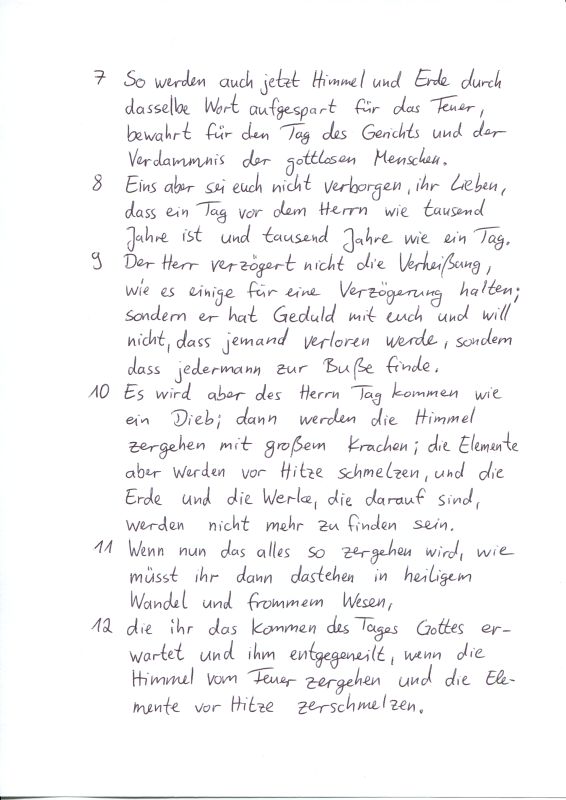 7 So werden auch jetzt Himmel und Erde durch
dasselbe Wort aufgespart für das Feuer,
bewahrt für den Tag des Gerichts und der
Verdammnis der gottlosen Menschen.
8 Eins aber sei euch nicht verborgen, ihr Lieben,
dass ein Tag vor dem Herrn wie tausend
Jahre ist und tausend Jahre wie ein Tag.
9 Der Herr verzögert nicht die Verheißung,
wie es einige für eine Verzögerung halten;
sondern er hat Geduld mit euch und will
nicht, dass jemand verloren werde, sondern
dass jedermann zur Buße finde.
10 Es wird aber des Herrn Tag kommen wie
ein Dieb; dann werden die Himmel
zergehen mit großem Krachen; die Elemente
aber werden vor Hitze schmelzen, und die
Erde und die Werke, die darauf sind,
werden nicht mehr zu finden sein.
11 Wenn nun das alles so zergehen wird, wie
müsst ihr dann dastehen in heiligem
Wandel und frommem Wesen,
12 die ihr das Kommen des Tages Gottes er-
wartet und ihm entgegeneilt, wenn die
Himmel vom Feuer zergehen und die Ele-
mente vor Hitze zerschmelzen.